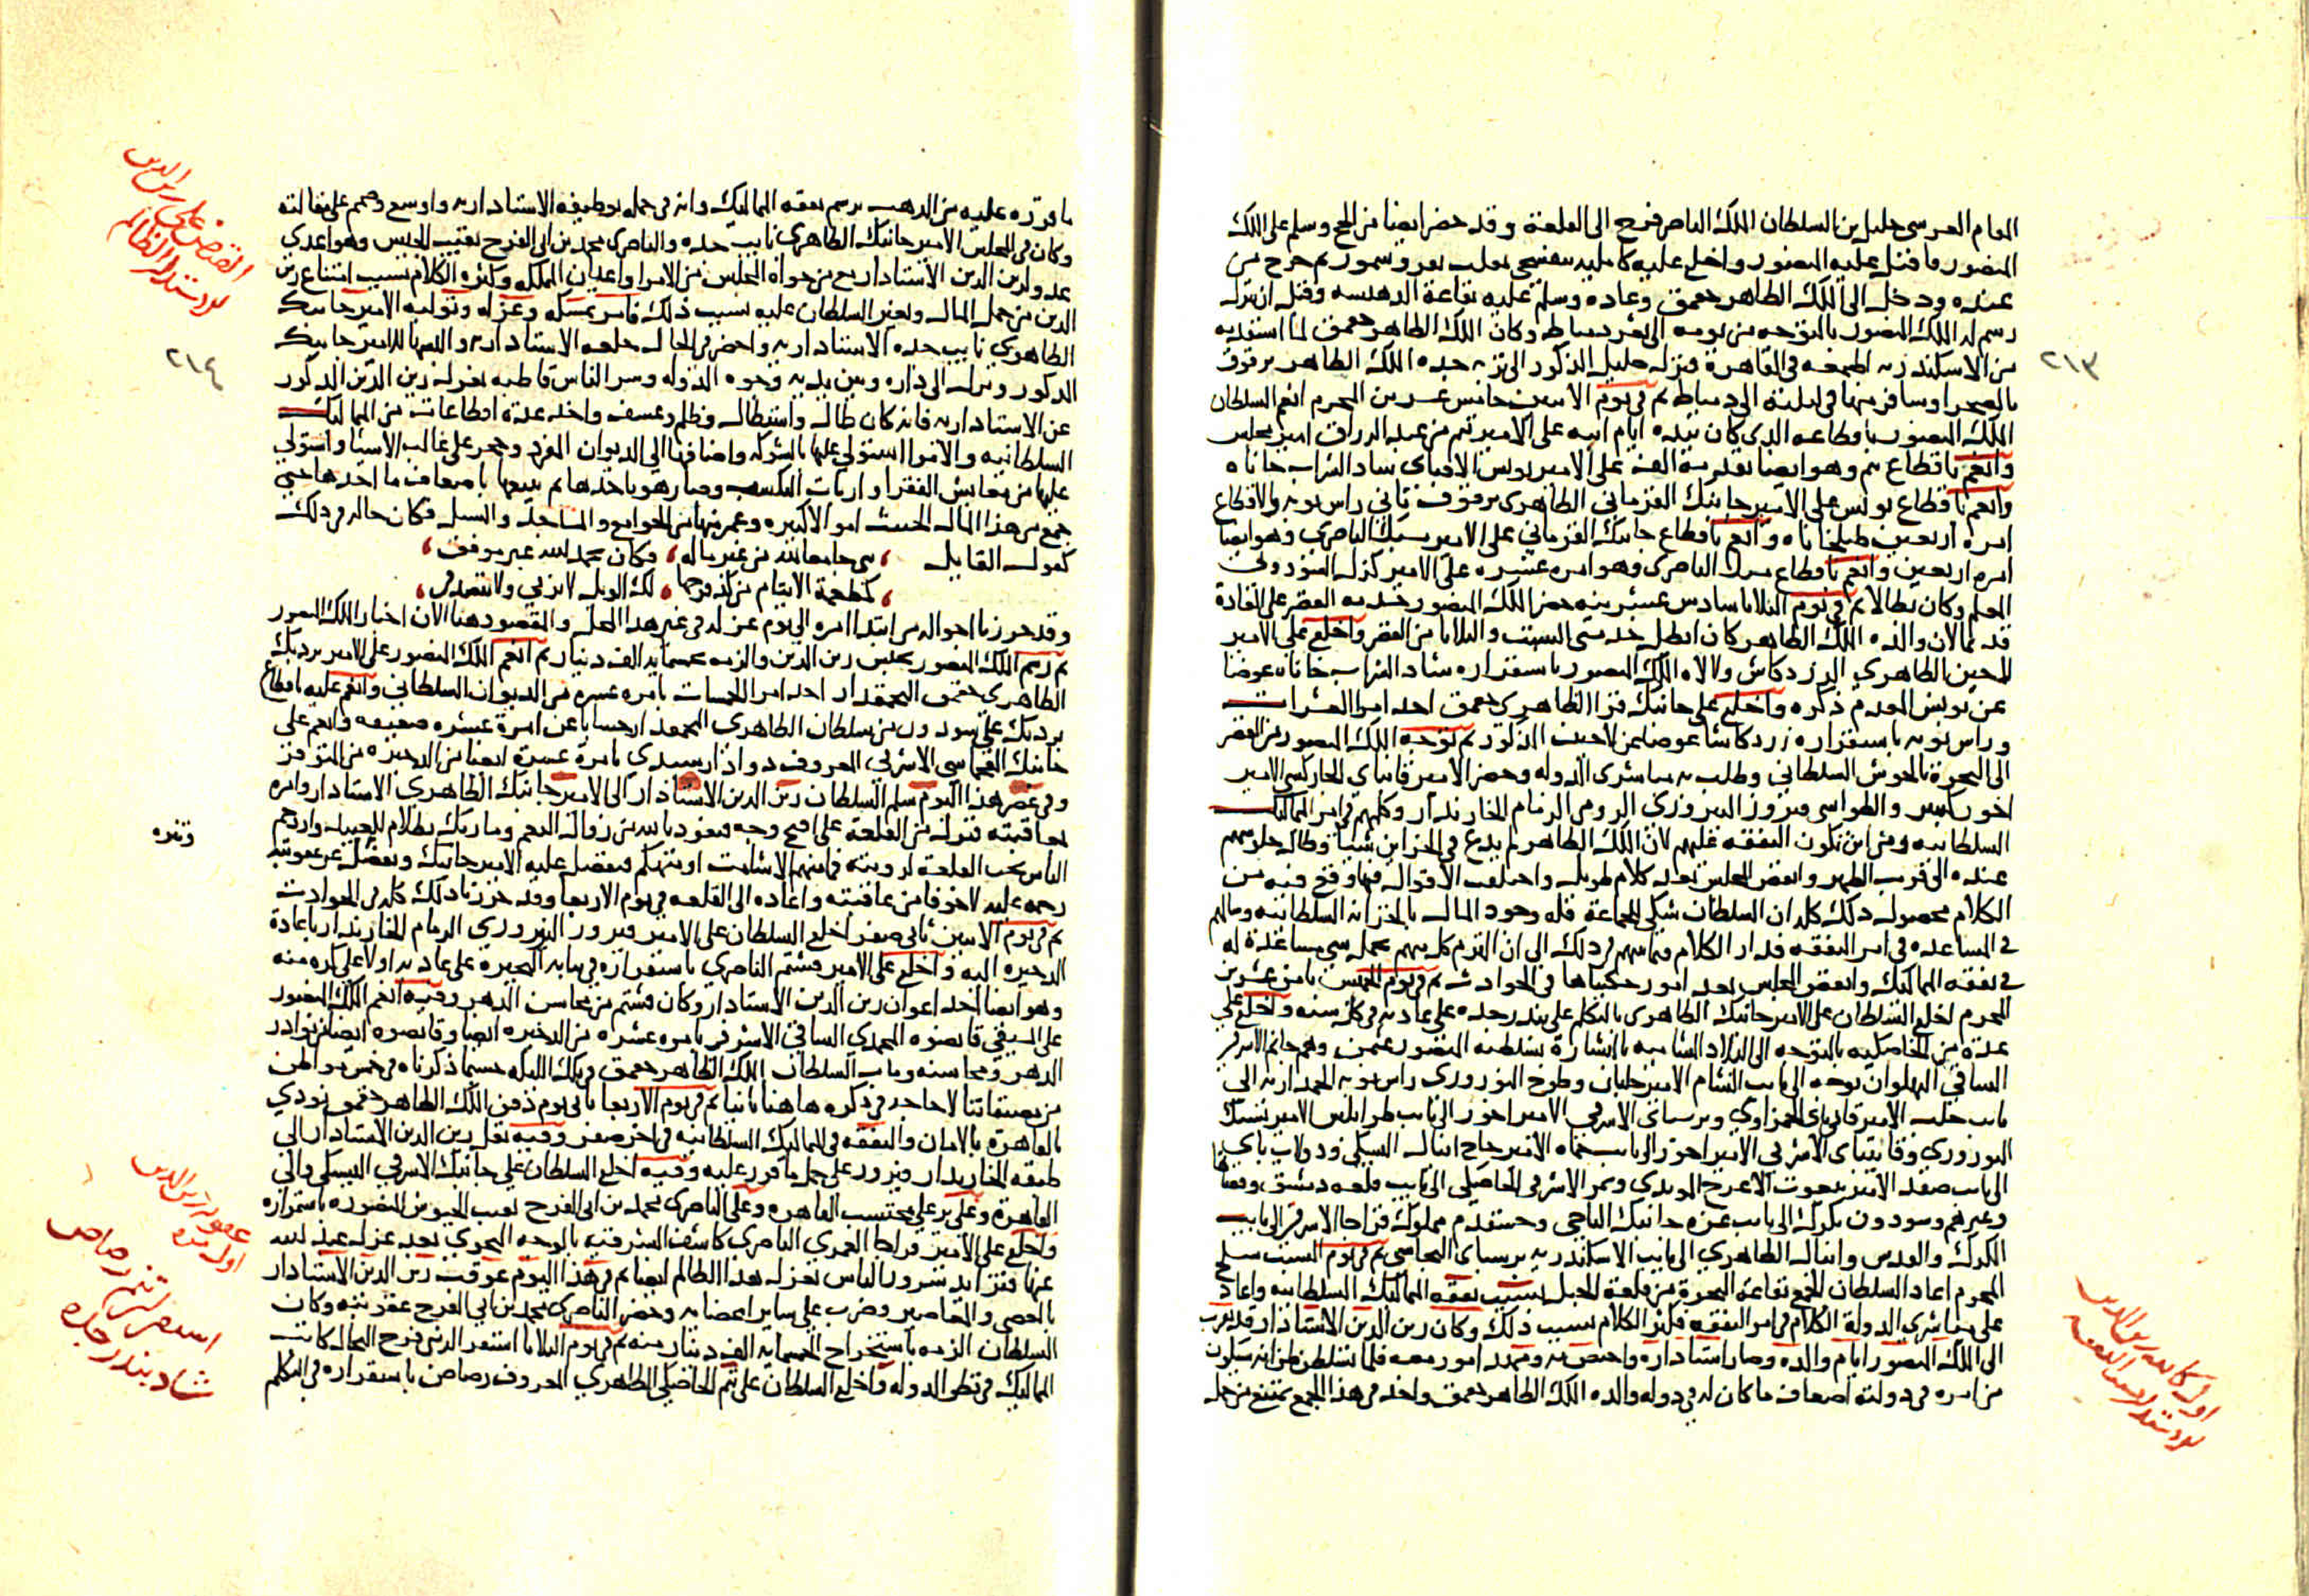 المقام الغرسى خليل بن السلطان الملك الناصر فرج الى القلعة وقد حضر ايضا من الحج وسلم على الملك
المنصور فاقبل عليه المنصور واخلع عليه كاملية بنفسجى بقلب سمور وسمور ثم خرج من
عنده ودخل الى الملك الظاهر جقمق وعاده وسلم عليه بقاعة الدهيشه وقبل ان ينزل
رسم له الملك المنصور بالتوجه من يومه الى ثغر دمياط وكان الملك الظاهر جقمق لما استقدمه
من الاسكندريه في القاهرة فنزل خليل المذكور الى تربه جده الملك الظاهر برقوق
بالصحرا وسافر منها في ليلته الى دمياط ثم في يوم الاثنين خامس عشرين المحرم انعم السلطان
الملك المنصور باقطاعه الذي كان بيده ايام ابيه على الامير تمر من عبد الرزاق امير مجلس
وانعم باقطاع تنم وهو ايضا تقدمه الف على الامير يونس الاقباى شاد الشراب خاناه
وانعم باقطاع يونس على الامير جانبك القرمانى الظاهرى برقوق ثانى راس نوبه والاقطاع
امرة اربعين طبلخاناه وانعم باقطاع جانبك القرماني على الامير يشبك الناصري وهو ايضا
امره اربعين وانعم باقطاع يشبك الناصرى وهو امره عشره على الامير كزل السودونى
المعلم وكان بطالا ثم في يوم الثلاثا سادس عشرينه حضر الملك المنصور خدمه القصر على العادة
قديما لان والده الملك الظاهر كان ابطل خدمتى السبت والثلاثا من القصر واخلع على الامير
لاجين الظاهري الزردكاش ولالاه الملك المنصور باستقراره شاد الشراب خاناه عوضا
عن يونس المقدم ذكره واخلع على جانبك قرا الظاهرى جقمق احد امرا العشرات
وراس نوبه باستقراره زردكاشا عوضا عن لاجين المذكور ثم توجه الملك المنصور من القصر
الى البحرة بالحوش السلطاني وطلب مباشرى الدوله وحضر الامير قانباى الجاركسى الامير
اخور كبير والطواشى فيروز النوروزى الرومى الزمام الخازندار وكلمهم في امر المماليك
السلطانيه ومن اين تكون النفقه عليهم لان الملك الظاهر لم يدع في الخزاين شيئا وطال جلوسهم
عنده الى قريب الظهر وانفض المجلس بعد كلام طويل واختلفت الاقوال فيما وقع فيه من
الكلام محصول ذلك كله ان السلطان شكى للجماعة قله وجود المال بالخزانه السلطانيه وسالهم
في المساعده في امر النفقه فدار الكلام فيما بينهم في ذلك الى ان التزم كل منهم بحمل شى مساعدة له
في نفقه المماليك وانفض المجلس بعد امور حكيناها في الحوادث ثم في يوم الخميس ثامن عشرين
المحرم اخلع السلطان على الامير جانبك الظاهرى بالتكلم على بندر جده على عادته في كل سنه واخلع على
عدة من الخاصكيه بالتوجه الى البلاد الشاميه بالبشارة بسلطنه المنصور عثمان وهم جانم الاشرفى
الساقى البهلوان توجه الى نايب الشام الامير جلبان وطوخ النوروزى راس نوبه الجمداريه الى
نايب حلب الامير قانى باى الحمزاوى وبرسباى الاشرفى الامير اخور الى نايب طرابلس الامير يشبك
النوروزى وقايتباى الاشرفى الامير اخور الى نايب حماه الامير حاج اينال اليشبكى ودولات باى
الى نايب صفد الامير بيغوت الاعرج المويدى وتمر الاشرفى الخاصكى الى نايب قلعه دمشق
وغيرهم وسودون يكرك الى نايب غزه جانبك التاجى وخشقدم مملوك قراجا الاشرفى الى نايب
الكرك والقدس واينال الظاهرى الى نايب الاسكندريه برسباى البجاسى ثم في يوم السبت سلخ
المحرم اعاد السلطان الجمع بقاعة البحرة من قلعة الجبل بسبب نفقه المماليك السلطانيه واعاد
على مباشرى الدولة الكلام في امر النفقه فكثر الكلام بسبب ذلك وكان زين الدين الاستادار قد تقرب
الى الملك المنصور ايام والده وصار استاداره واختص به ومهد اموره معه فلما تسلطن ظن انه سيكون
من امره في دولته اضعاف ما كان له في دوله والده الملك الظاهر جقمق واخذ في هذا الجمع يمتنع من حمل
٢١٣
اول كاينه زين الدين
الاستادار بسبب النفقه
ما قرره عليه من الذهب برسم نفقه المماليك وانه في حمله بوظيفه الاستاداريه واوسع وصمم على مقالته
وكان في المجلس الامير جانبك الظاهرى نايب جده والناصرى محمد بن ابى الفرج نقيب الجيش وهو اعدى
عدو لزين الدين الاستادار مع من حواه المجلس من الامرا واعيان المملكه وكثر الكلام بسبب امتناع زين
الدين من حمل المال وتغير السلطان عليه بسبب ذلك فامر بمسكه وعزله وتوليه الامير جانبك
الظاهري نايب جده الاستاداريه واحضر في الحال خلعه الاستاداريه والبسها للامير جانبك
المذكور ونزل الى داره وبين يديه وجوه الدوله وسر الناس قاطبه بعزل زين الدين المذكور
عن الاستاداريه فانه كان طال واستطال وظلم وعسف واخذ عدة اقطاعات من المماليك
السلطانيه والامرا استولى عليها بالشوكه واضافها الى الديوان المفرد وحجر على غالب الاشيا واستولى
عليها من معايش الفقرا وارباب التكسب وصار هو ياخذها ثم يبيعها باضعاف ما اخذها حتى
جمع من هذا المال الخبيث امو الاكثيره وعمر منها من الجوامع والمساجد والسبل فكان حاله في ذلك
كقول القايل ، بنى جامعا لله من غير ماله ، وكان بحمد الله غير موفق ،
، كمطعمة الايتام من كد فرجها ، لك الويل لا تزنى ولا تتصدقى ،
وقد حررنا احواله من ابتدا امره الى يوم عزله في غير هذا المحل والمقصود هنا الان اخبار الملك المنصور
ثم رسم الملك المنصور بحبس زين الدين والزمه بخمسمايه الف دينار ثم انعم الملك المنصور على الامير بردبك
الظاهرى جقمق البجمقدار احد امرا الخمسات بامره عشره من الديوان السلطانى وانعم عليه اقطاع
بردبك على سودون من سلطان الظاهرى البجمقدار حسابا عن امرة عشره ضعيفه وانعم على
جانبك القجماسى الاشرفى المعروف دوادار سيدى بامرة عشرة ايضا من الذخيره من المتوفر
وفي عصر هذا اليوم سلم السلطان زين الدين الاستادار الى الامير جانبك الظاهري الاستادار وامره
بمعاقبته فنزل من القلعة على اقبح وجه فنعوذ بالله من زوال النعم وما ربك بظلام للعبيد وازدحم
الناس تحت القلعة لرويته فما منهم الا شامت او متهكم فتفضل عليه الامير جانبك وتفضل عن عقوبته
رحمه عليه لا خوفا من عاقبته واعاده الى القلعه في يوم الاربعا وقد حررنا ذلك كله في الحوادث
ثم في يوم الاثنين ثانى صفر اخلع السلطان على الامير فيروز النوروزى الزمام الخازندار باعادة
الذخيره اليه واخلع على الامير قشتم الناصري باستقراره في نيابه البحيرة على عادته اولا على كره منه
وهو ايضا احد اعوان زين الدين الاستادار وكان قشتم من محاسن الدهر وفيه انعم الملك المنصور
على السيفى قانصوه المحمدى الساقى الاشرفى بامره عشره من الذخيره ايضا وقانصوه ايضا من نوادر
الدهر ومحاسنه ومات السلطان الملك الظاهر جقمق في تلك الليله حسبما ذكرناه في غير موطن
من مصنفاتنا لا حاجه في ذكره هاهنا ثانيا ثم في يوم الاربعا ثانى يوم دفن الملك الظاهر جقمق نودى
بالقاهرة بالامان والنفقه في المماليك السلطانيه في اخر صفر وفيه نقل زين الدين الاستادار الى
طبقه الخازندار فيروز على حمل ما قرر عليه وفيه اخلع السلطان على جانبك الاشرفى اليشبكى والى
القاهرة وعلى يرعلى محتسب القاهره وعلى الناصرى محمد بن ابى الفرج نقيب الجيوش المنصوره باستمراره
واخلع على الامير قراجا العمرى الناصرى كاشف الشرقيه بالوجه البحرى بعد عزل عبد الله
عنها فتزايد سرور الناس بعزل هذا الظالم ايضا ثم في هذا اليوم عوقب زين الدين الاستادار
بالعصى والمعاصير وضرب على ساير اعضايه وحضر الناصرى محمد بن ابى الفرج عقوبته وكان
السلطان الزمه باستخراج الخمسمايه الف دينار منه ثم في يوم الثلاثا استقر الدينى فرج النحال كاتب
المماليك في نظر الدوله واخلع السلطان على تنم الخاصكى الظاهري المعروف رصاص باستقراره في التكلم
القبض على زين الدين
الاستادار الظالم
٢١٤
وتنزه
عقوبه زين الدين
اول مره
استقرار تنم رصاص
شاد بندر جده